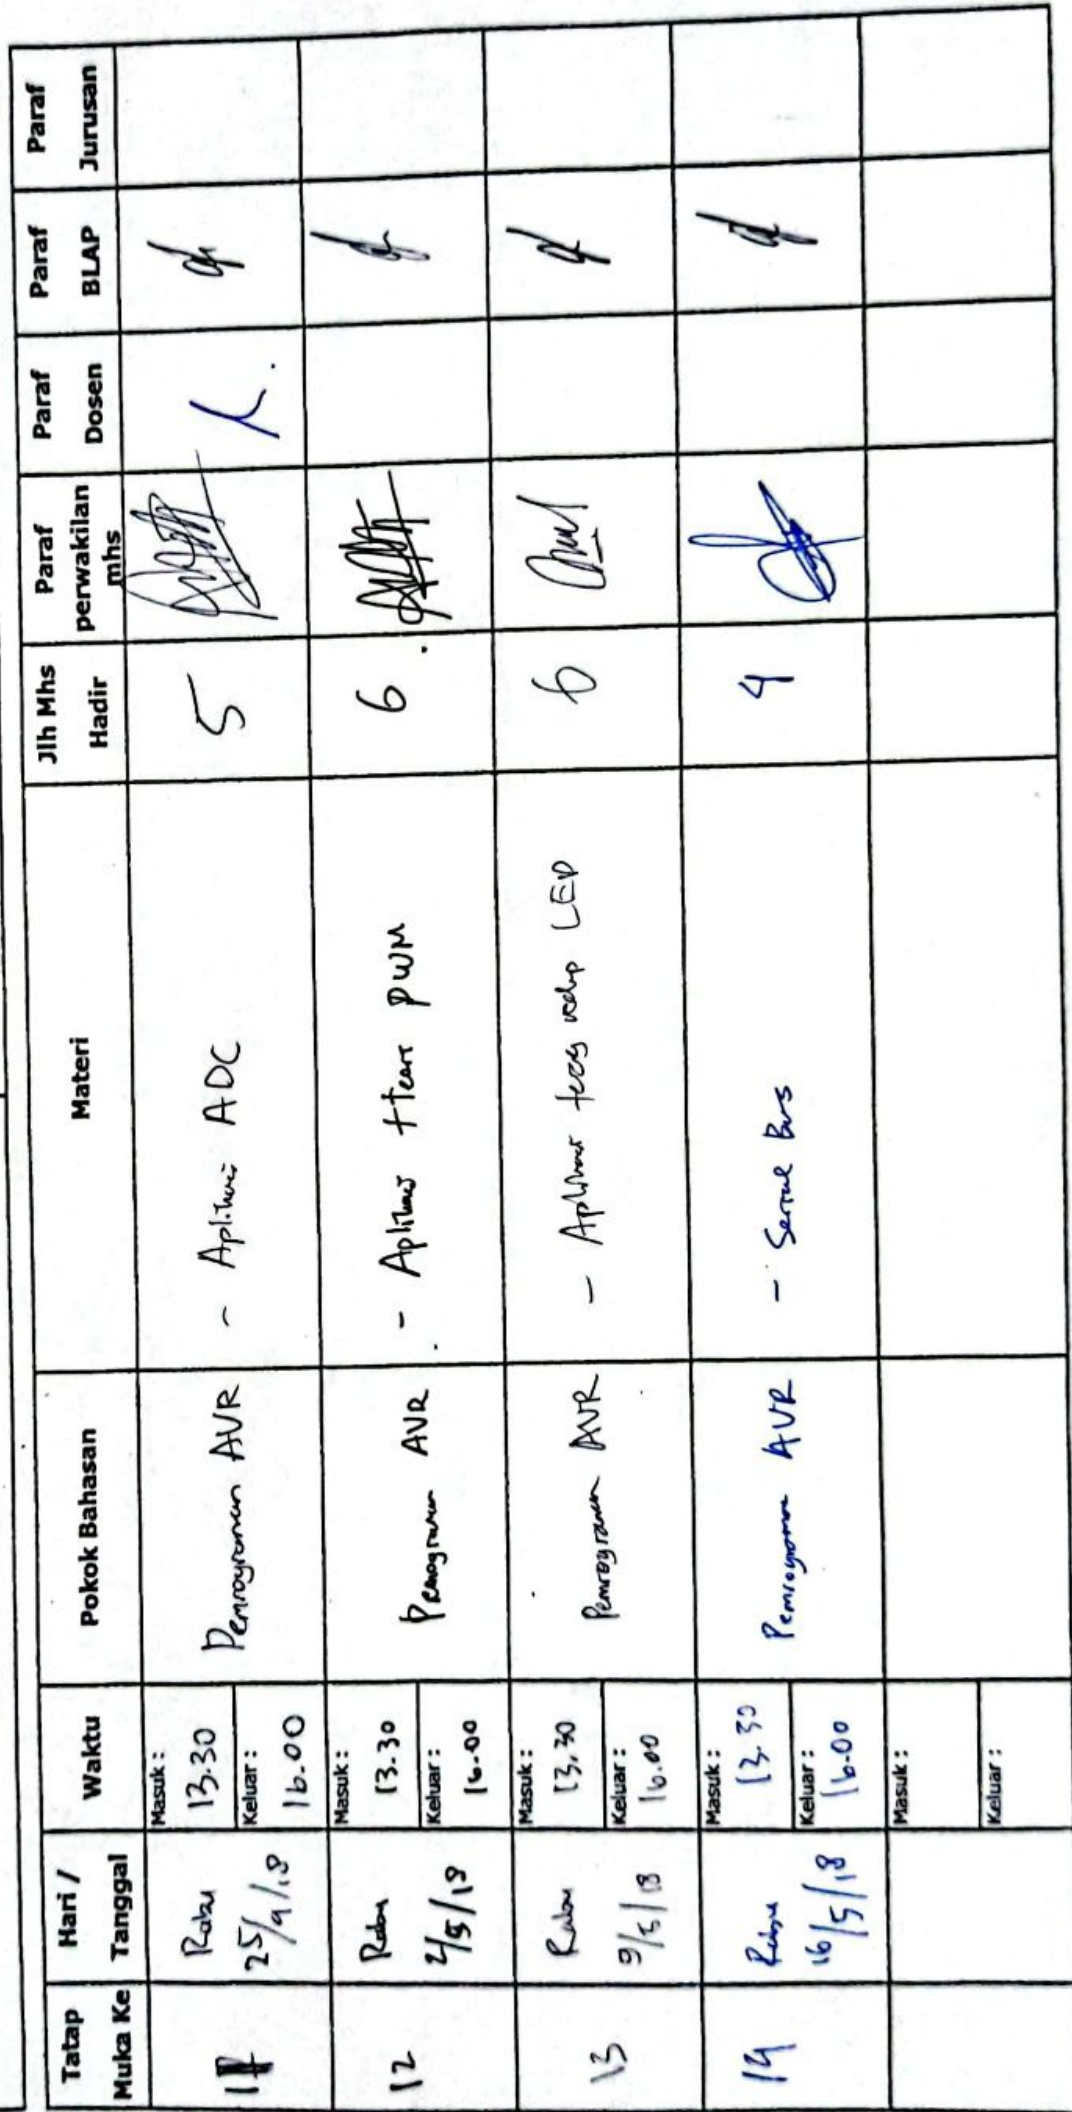 Tatap Muka Ke
Hari / Tanggal
Waktu
Pokok Bahasan
Materi
Jlh Mhs Hadir
Paraf perwakilan mhs
Paraf Dosen
Paraf BLAP
Paraf Jurusan
11
Rabu
25/4/18
Masuk :
13.30
Keluar :
16.00
Pemrograman AVR
- Aplikasi ADC
5
12
Rabu
2/5/18
Masuk :
13.30
Keluar :
16.00
Pemrograman AVR
- Aplikasi PWM
6
13
Rabu
9/5/18
Masuk :
13.30
Keluar :
16.00
Pemrograman AVR
- Aplikasi LED
6
14
Rabu
16/5/18
Masuk :
13.30
Keluar :
16.00
Pemrograman AVR
- Serial Bus
4
Masuk :
Keluar :